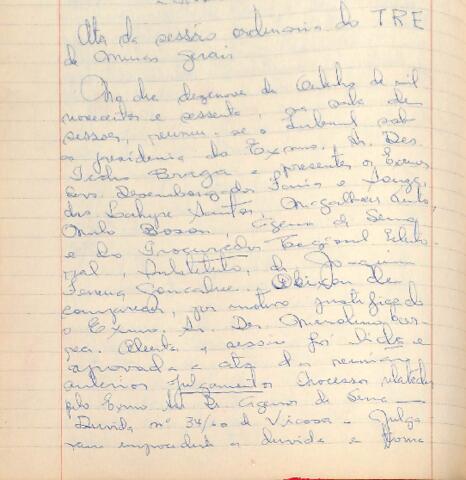 Ata da sessão ordinaria do TRE
de Minas Gerais
No dia dezenove de Outubro de mil
novecentos e sessenta, na sala de
sessões, reuniu-se o Tribunal sob
a presidencia do Exmo. Sr. Des.
Pedro Braga e presentes os Exmos
Srs. Desembargador Faria e Souza,
drs. Santos, Magalhães Pinto,
Cicero de Sena
e do Procurador Regional Eleito-
ral, Substituto, dr. Joaquim
Ferreira Gonçalves. Deixou de
comparecer, por motivo justificado
o Exmo. Sr. Des.
Aberta a sessão foi lida e
aprovada a ata da reunião
anterior Julgamentos Processos relatados
pelo Exmo Sr Dr Cicero de Sena
Duvida nº 34/60 de Viçosa - Julga
ram improcedente a duvida e